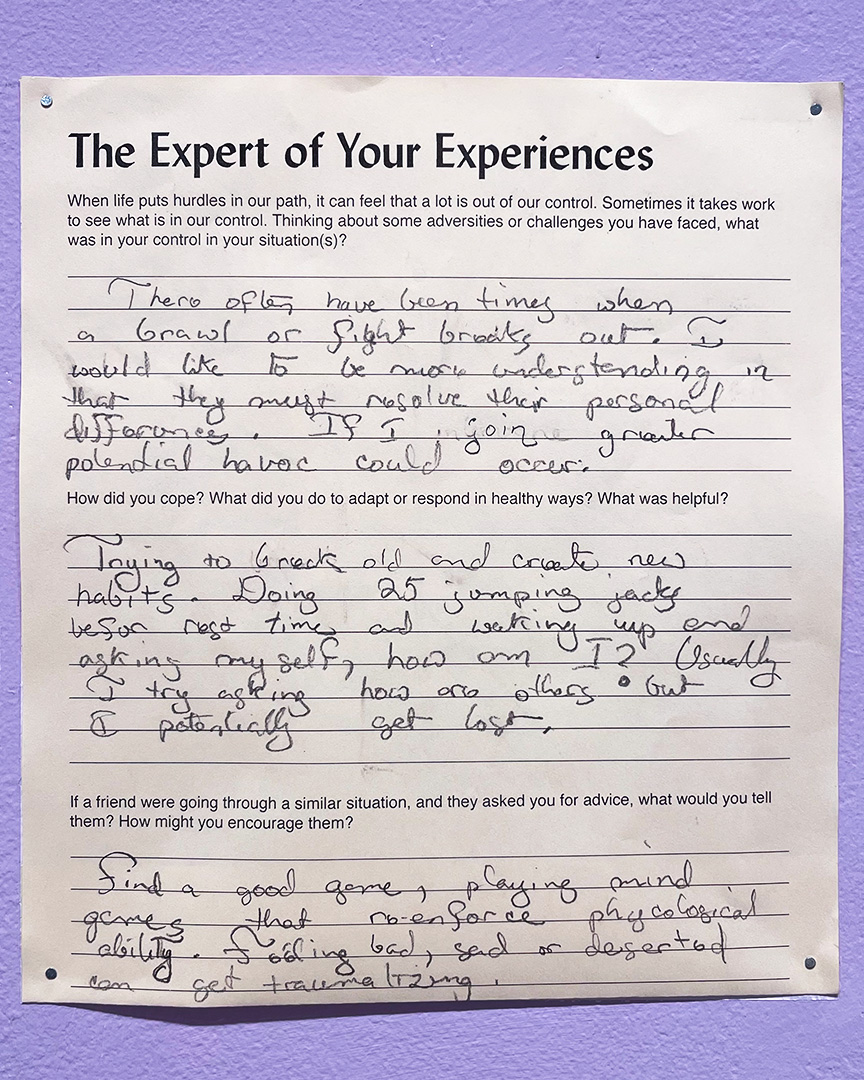 The Expert of Your Experiences
When life puts hurdles in our path, it can feel that a lot is out of our control. Sometimes it takes work
to see what is in our control. Thinking about some adversities or challenges you have faced, what
was in your control in your situation(s)?
There often have been times when
a brawl or fight breaks out. I
would like to be more understanding in
that they must resolve their personal
differences. If I join greater
potential havoc could occer.
How did you cope? What did you do to adapt or respond in healthy ways? What was helpful?
Trying to break old and create new
habits. Doing 25 jumping jacks
befor rest time and waking up and
asking myself, how am I? Usually
I try asking how are others but
I potentially get lost.
If a friend were going through a similar situation, and they asked you for advice, what would you tell
them? How might you encourage them?
Find a good game, playing mind
games that re-enforce phycological
ability. Feeling bad, sad or deserted
can get traumatizing.